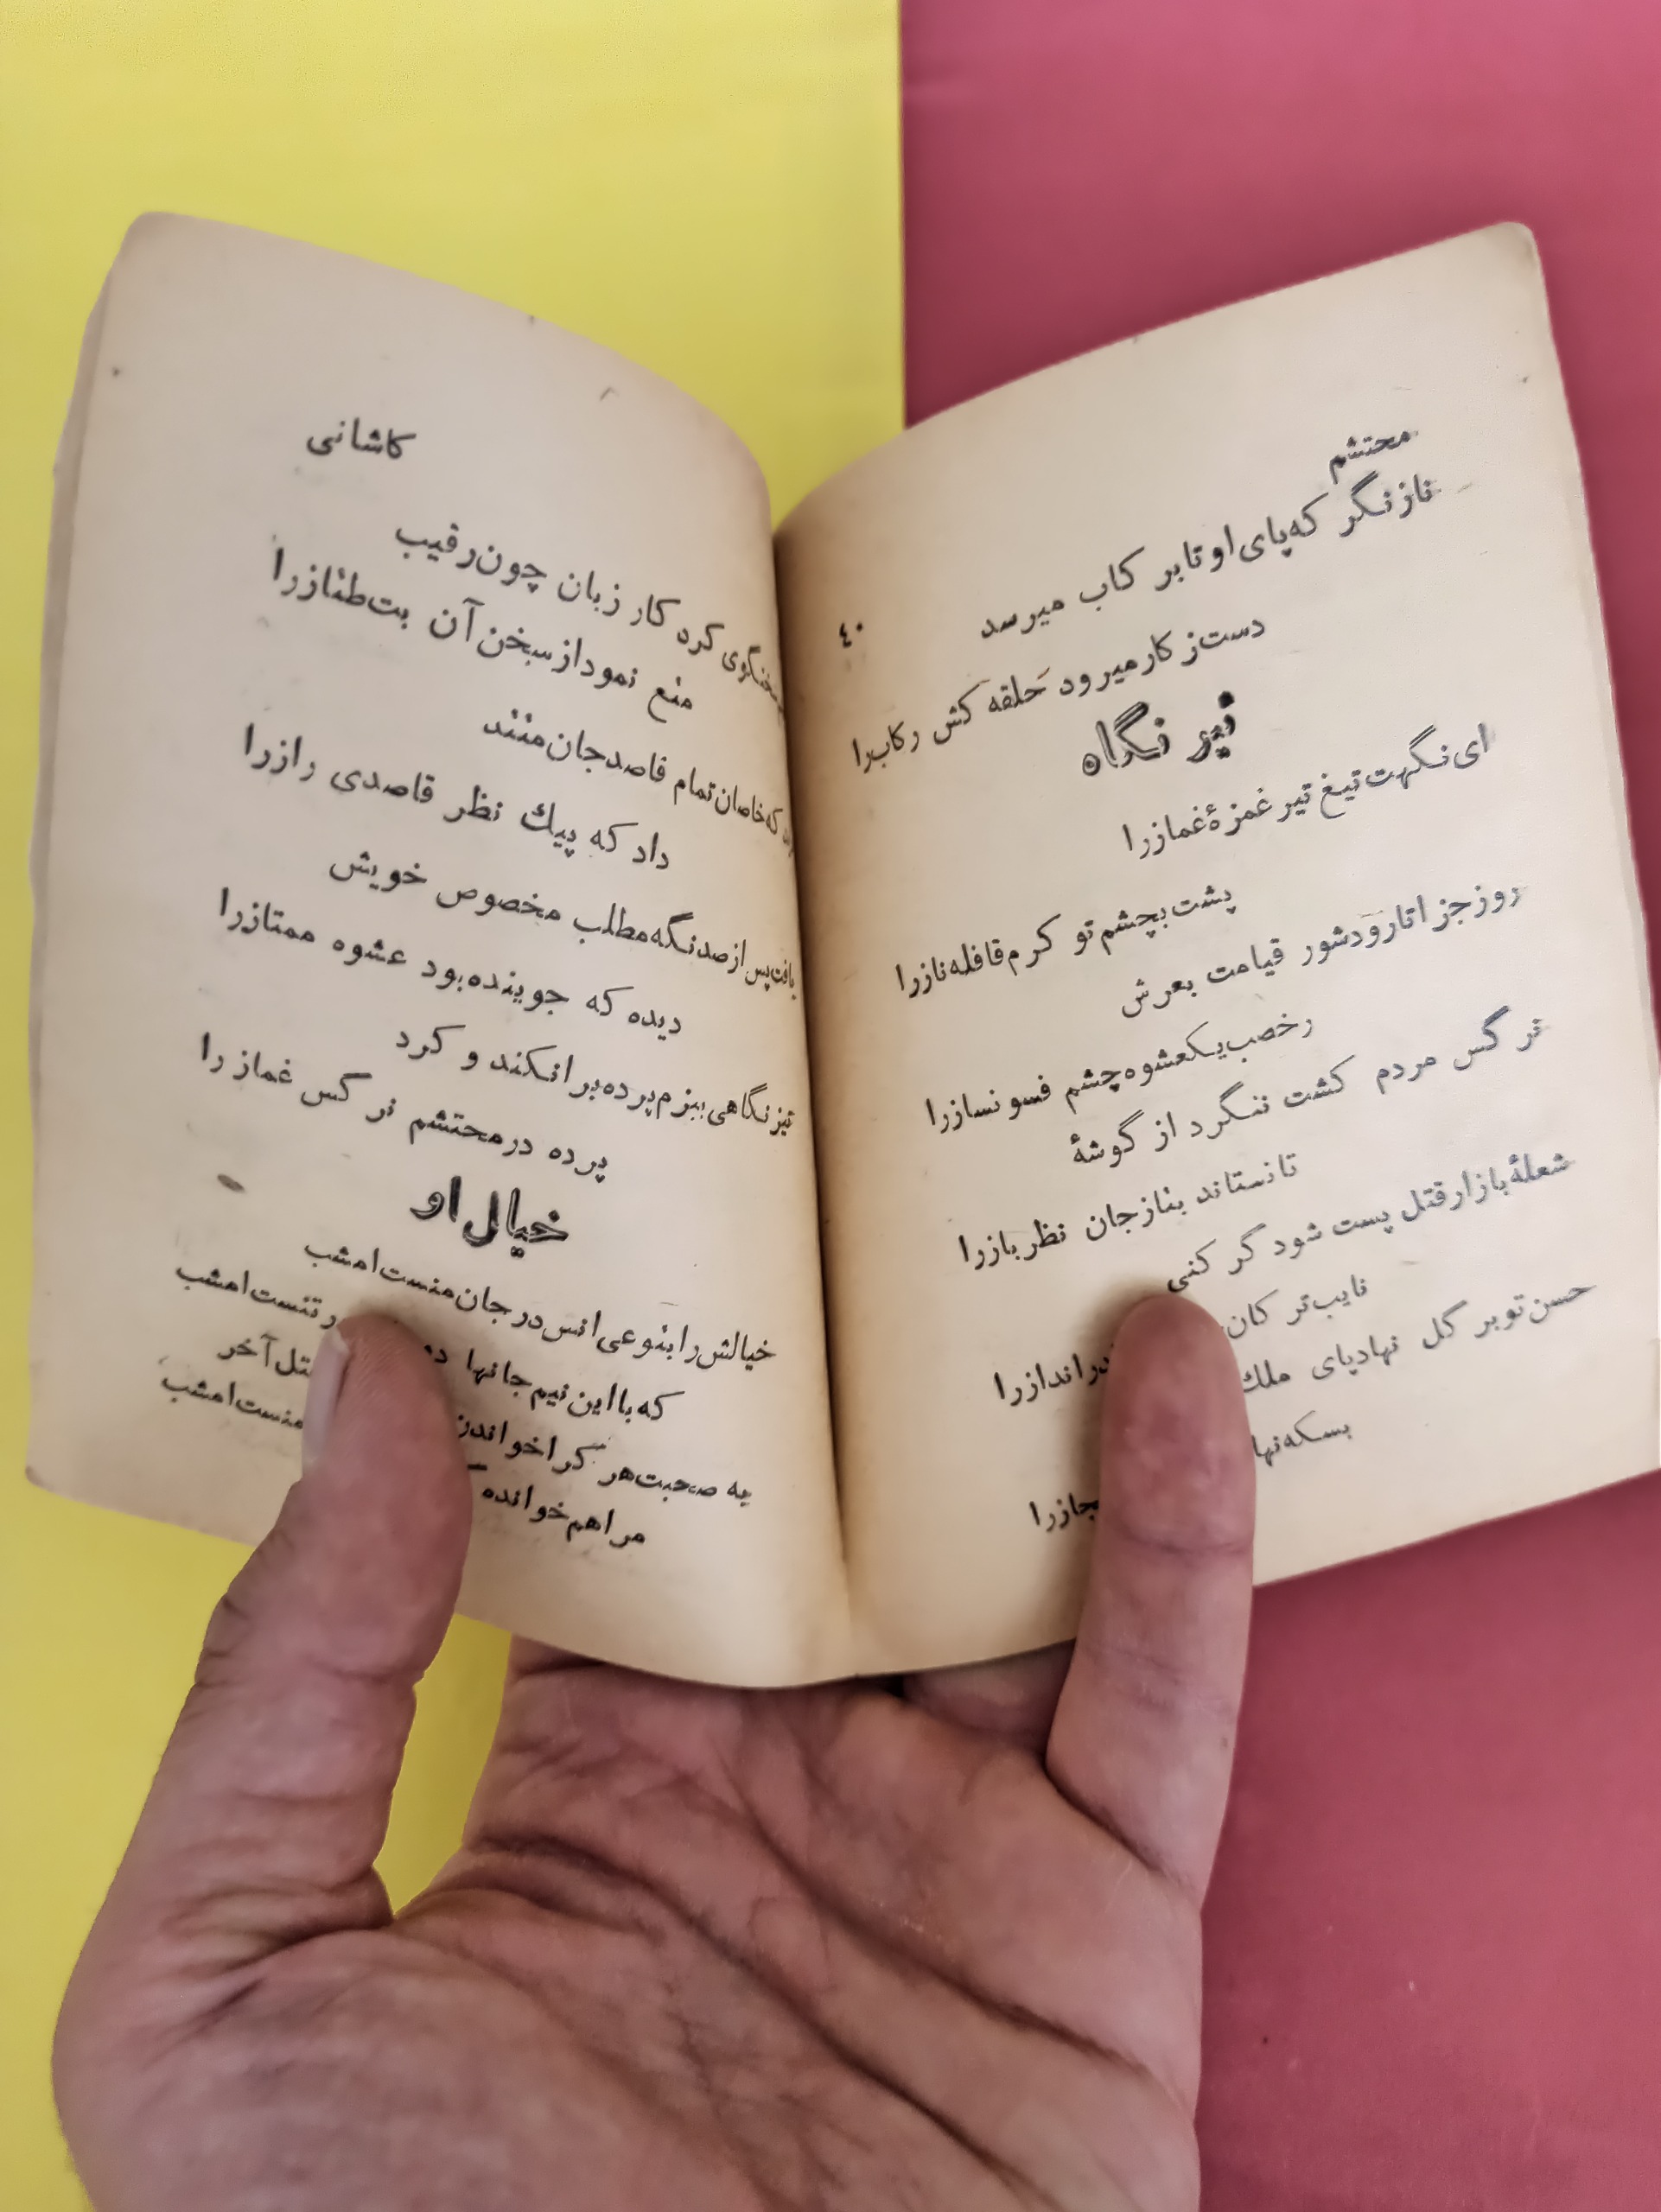 محتشم
نازنگر که پای او تا بر کاب میرسد
دست ز کار میرود حلقه کش رکاب را
۴۰
تیر نگاه
ای نگهت تیغ تیر غمزهٔ غماز را
پشت بچشم تو کرم قافله ناز را
روز جز اتا رود شور قیامت بعرش
رخصب یکعشوه چشم فسو نساز را
نر گس مردم کشت ننگرد از گوشهٔ
تا نستاند بناز جان نظر باز را
شعلهٔ بازار قتل پست شود گر کنی
نایب تر کان در انداز را
حسن تو بر گل نهاد پای ملك
بسکه نها جاز را
کاشانی
سخنگوی کره کار زبان چون رقیب
منع نمود از سخن آن بت طناز را
که خاصان تمام قاصد جان منند
داد که پيك نظر قاصدی راز را
یافت پس از صد نگه مطلب مخصوص خویش
دیده که جوینده بود عشوه ممتاز را
تیز نگاهی ببزم پرده بر انکند و کرد
پرده در محتشم نر کس غماز را
خیال او
خیالش را بنوعی انس در جان منست امشب
که با این نیم جانها در تنست امشب
به صحبت هر کر اخواند آخر
مرا هم خوانده منست امشب